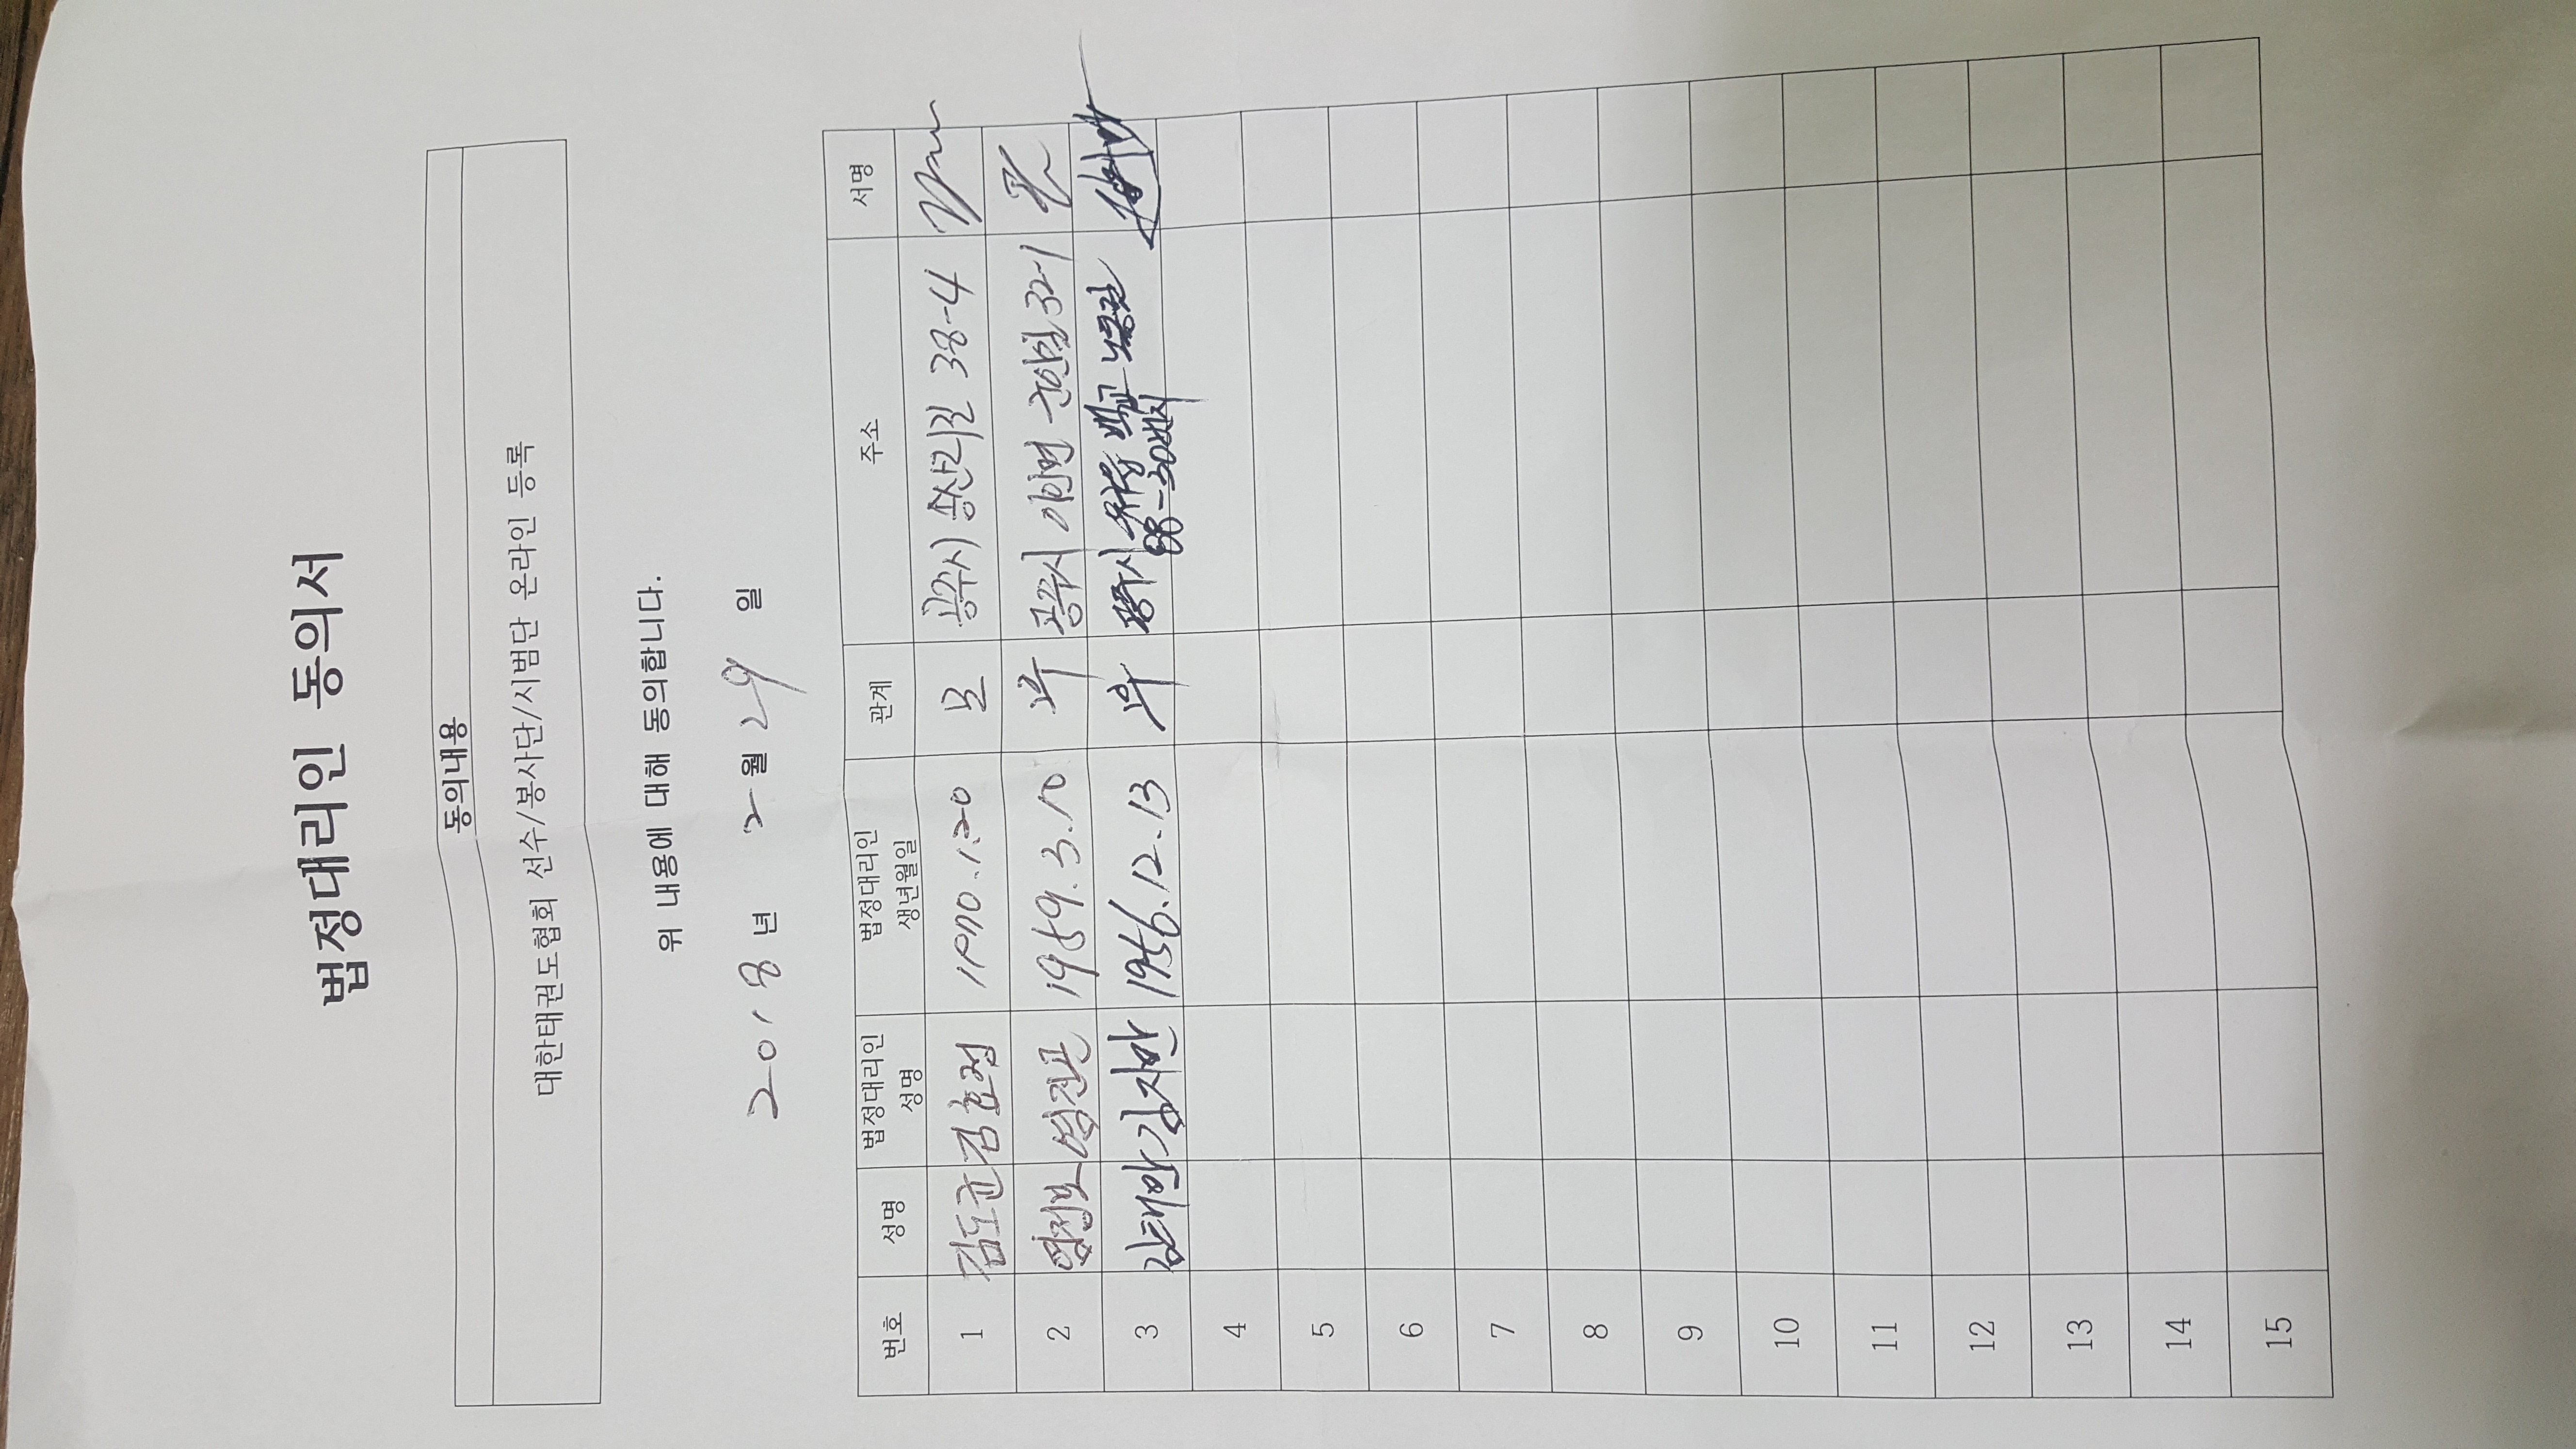 법정대리인 동의서
동의내용
대한태권도협회 선수/봉사단/시범단 온라인 등록
위 내용에 대해 동의합니다.
2018 년 2 월 29 일
번호 성명 법정대리인 성명 법정대리인 생년월일 관계 주소 서명
1 김도균 김효정 1970.1.20 모 공주시 송산리길 38-4
2 부 공주시 32-1
3 김태민 김지만 1956.12.13 부 공주시
4
5
6
7
8
9
10
11
12
13
14
15